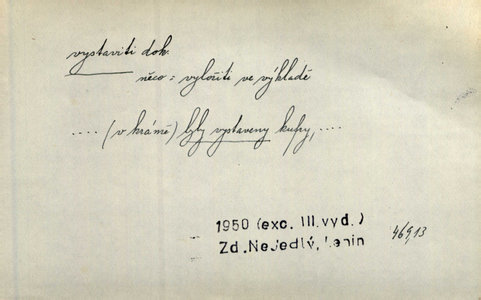 vystaviti dok.
něco = vyložiti ve výkladě
.... (v krámě) byly vystaveny kufry, ....
1950 (exc. III. vyd.)
Zd. Nejedlý, Lenin
469,13